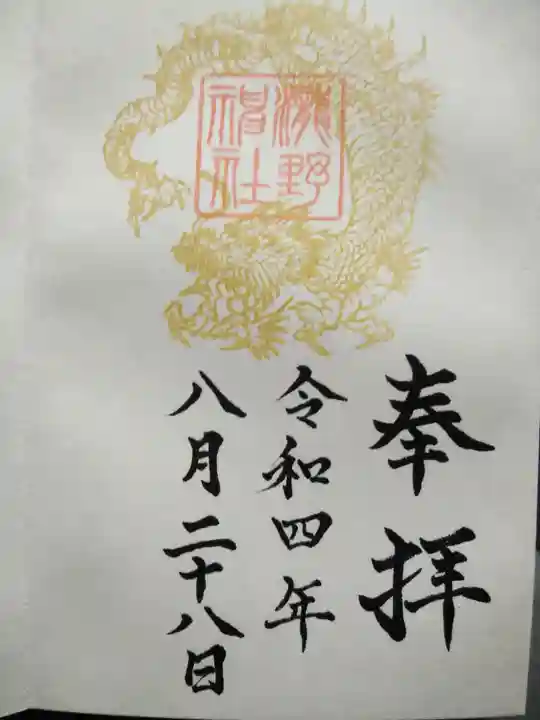 奉拝
令和四年
八月二十八日
瀧野
神社